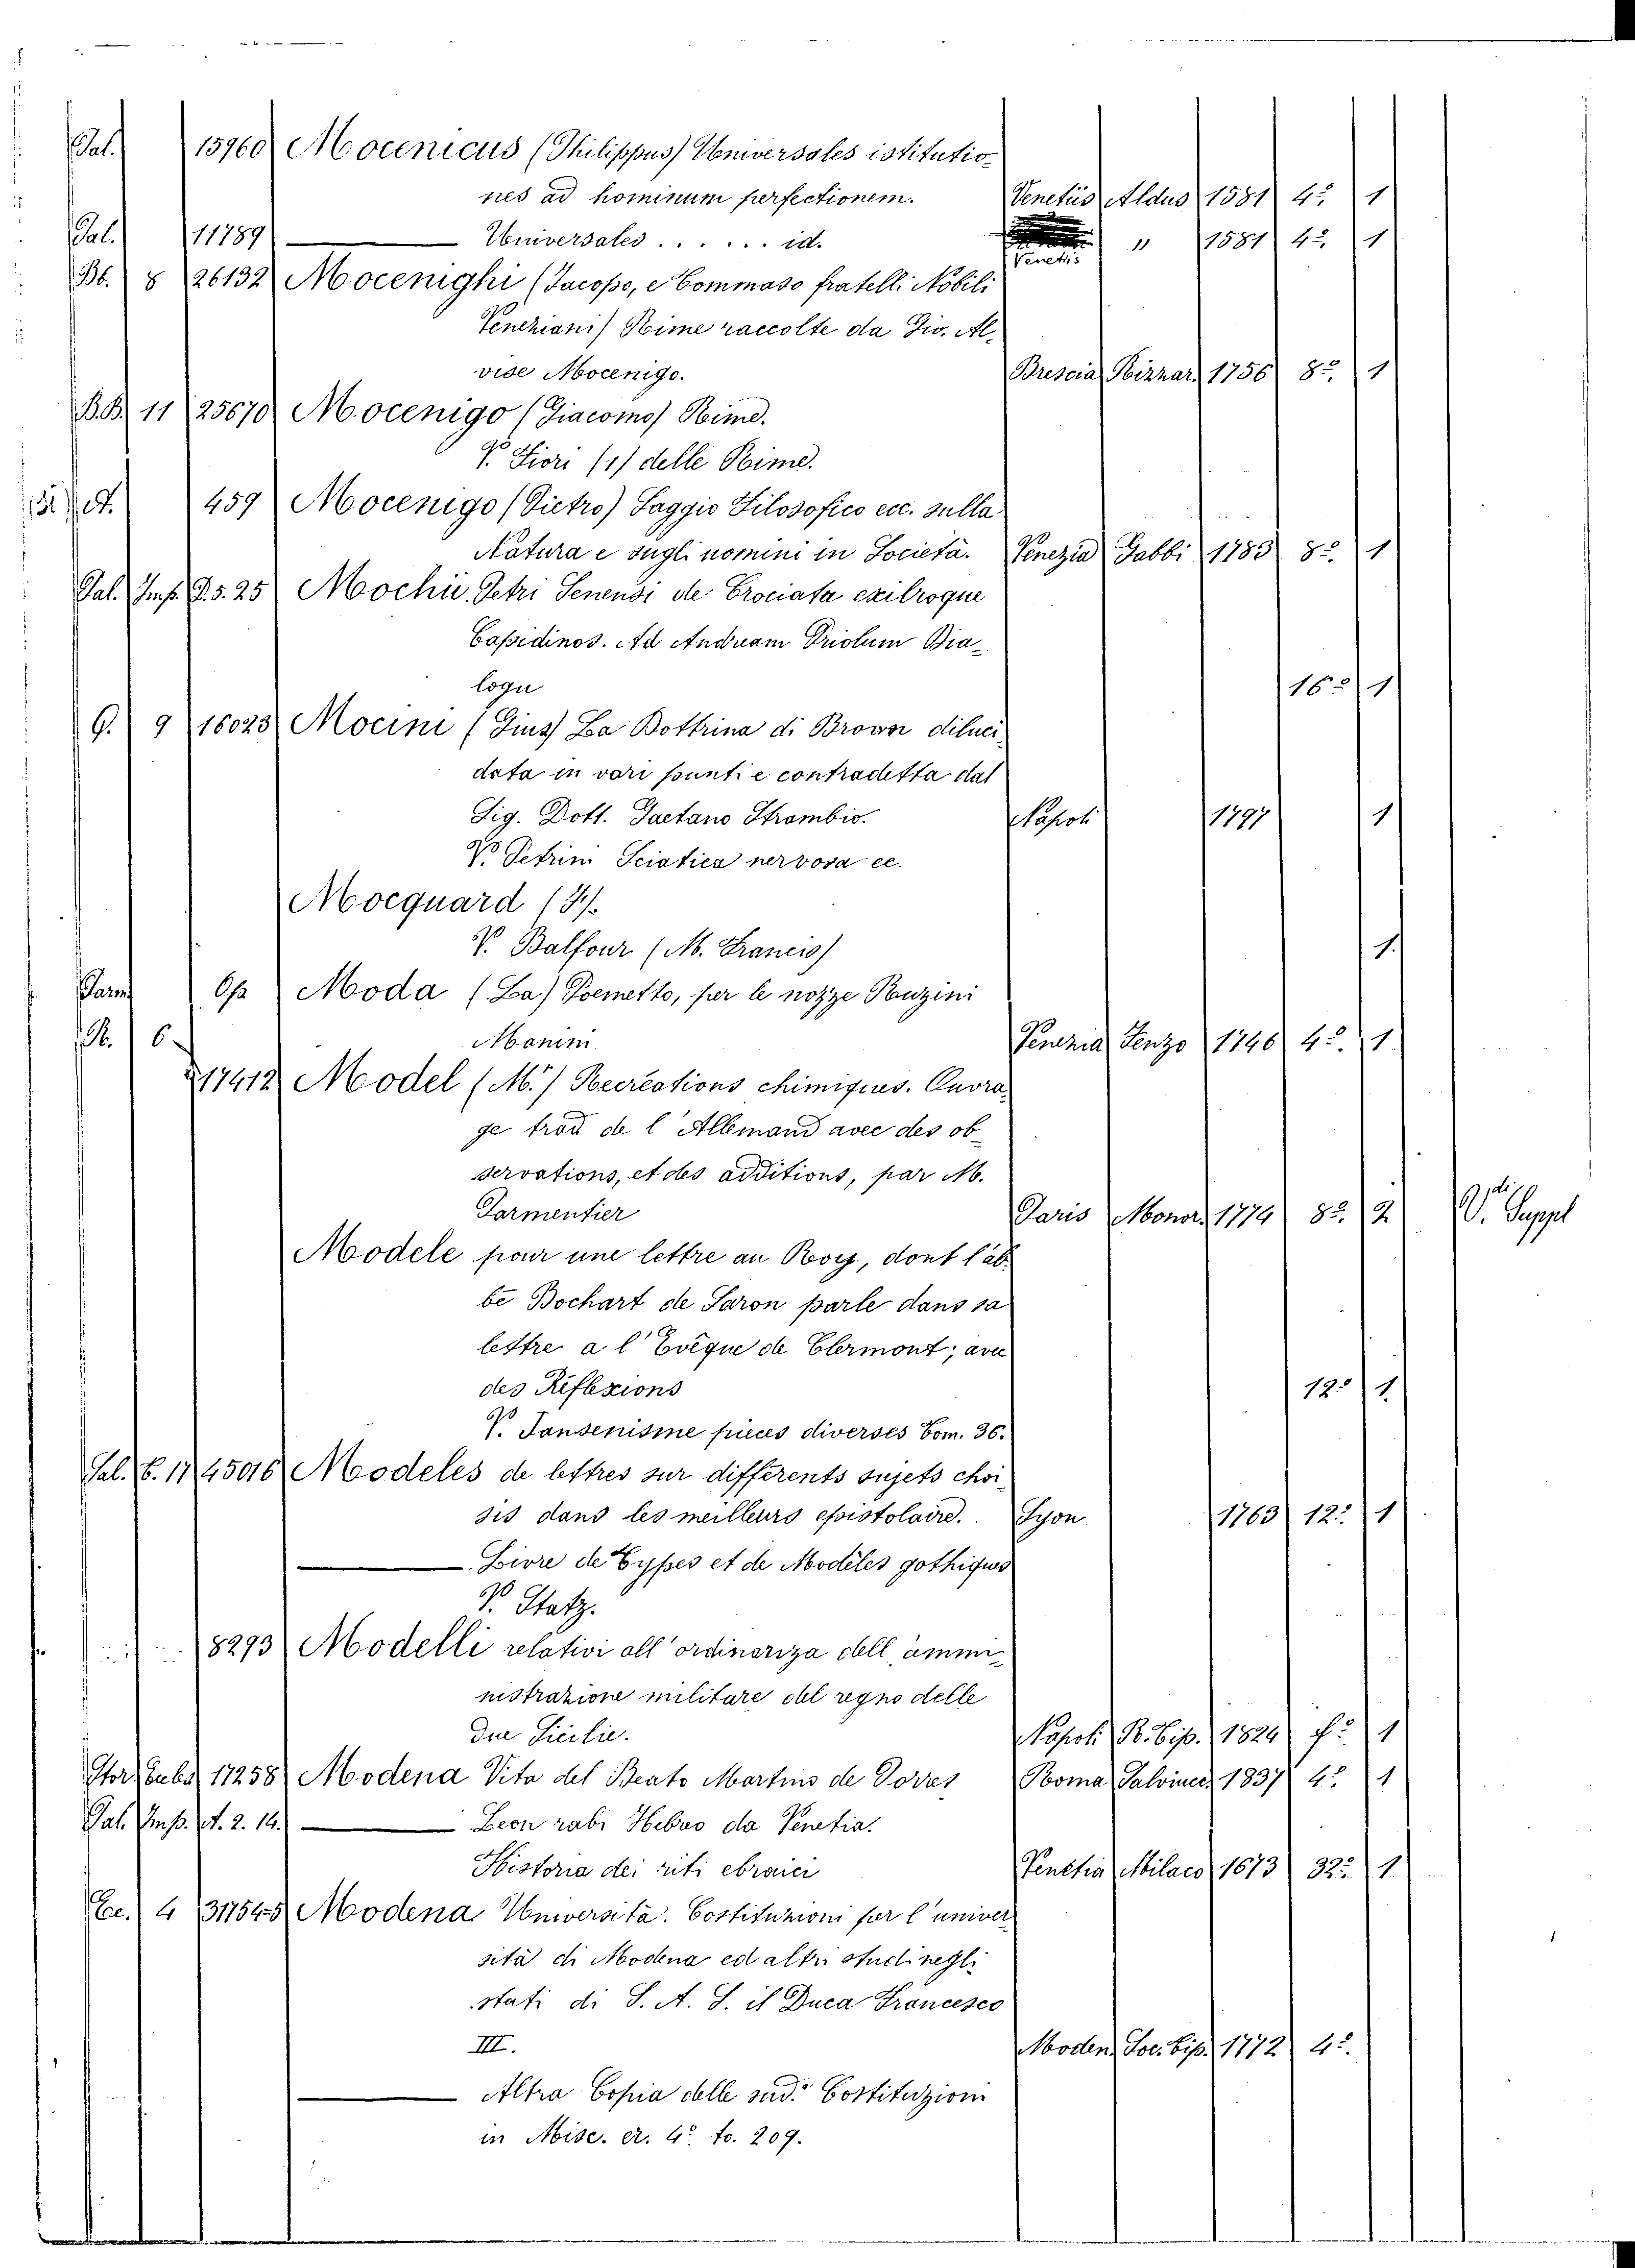 Pal. 15960 Mocenicus (Philippus) Universales istitutio-
nes ad hominum perfectionem. Venetiis Aldus 1581 4.° 1
Pal. 11789 Universales . . . . . . id. Venetiis " 1581 4.° 1
BB. 8 26132 Mocenighi (Jacopo, e Tommaso fratelli Nobili
Veneziani) Rime raccolte da Gio. Al-
vise Mocenigo. Brescia Rizzar. 1756 8.° 1
B.B. 11 25670 Mocenigo (Giacomo) Rime.
V. Fiori (1) delle Rime.
A. 459 Mocenigo (Pietro) Saggio Filosofico ecc. sulla
Natura e sugli uomini in Società. Venezia Gabbi 1783 8.° 1
Pal. Imp. D. 5. 25 Mochii Petri Senensi de Crociata exilroque
Cassidinos. Ad Andream Priolum Dia-
logu 16.° 1
G. 9 16023 Mocini (Gius) La Dottrina di Brown diluci-
data in vari punti e contradetta dal
Sig. Dott. Gaetano Strambio. Napoli 1797 1
V. Petrini Sciatica nervosa ec.
Mocquard (
V. Balfour (M. Francis) 1.
Parm Op Moda (La) Poemetto, per le nozze Ruzini
R. 6 Manini Venezia Penzo 1746 4.° 1
17412 Model (M.r) Recréations chimiques. Ouvra-
ge trad de l'Allemand avec des ob-
servations, et des additions, par M.
Parmentier Paris Monor. 1774 8.° 2. V. di Suppl
Modele pour une lettre au Roy, dont l'ab-
bé Bochart de Saron parle dans sa
lettre a l'Evêque de Clermont; avec
des Réflexions 12.° 1.
V. Jansenisme pieces diverses Tom. 36.
Pal. C. 17 45016 Modeles de lettres sur différents sujets choi-
sis dans les meilleurs epistolaire. Lyon 1763 12.° 1
Livre de Types et de Modèles gothiques
V. Statz.
8293 Modelli relativi all'ordinanza dell'ammi-
nistrazione militare del regno delle
due Sicilie. Napoli R. Tip. 1824 f.° 1
Stor. Tuba 17258 Modena Vita del Beato Martino de Porres Roma Salviucci 1837 4.° 1
Pal. Imp. A. 2. 14. Leon rabi Hebreo da Venetia.
Historia dei riti ebraici Venetia Milaco 1673 32.° 1.
Ee. 4 31754-5 Modena Università. Costituzioni per l'univer-
sità di Modena ed altri studi negli
stati di S. A. S. il Duca Francesco
III. Moden. Soc. Tip. 1772 4.°
Altra Copia delle sud.e Costituzioni
in Misc. er. 4.° to. 209.